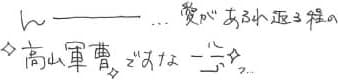 ん────…愛があふれ返る程の
✧高山軍曹✧ですなー